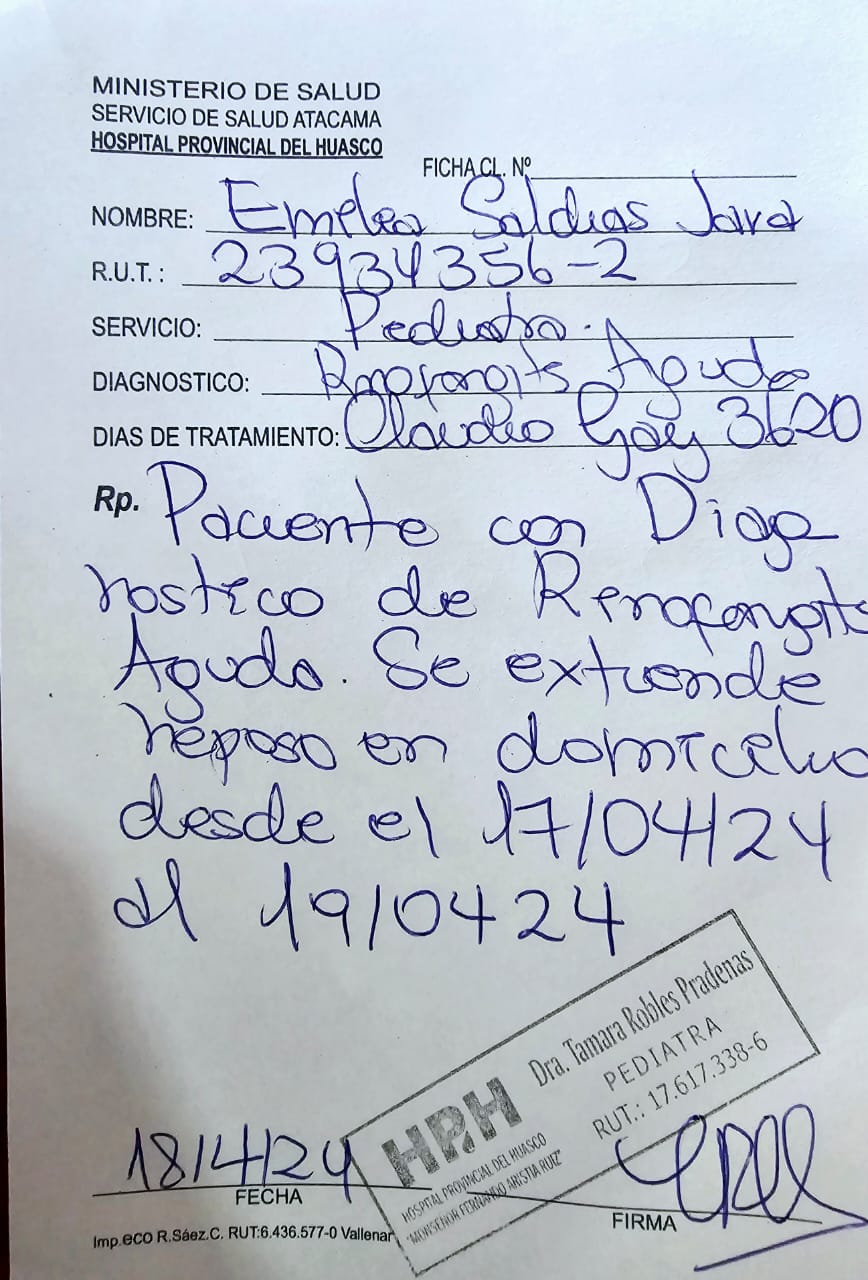 MINISTERIO DE SALUD
SERVICIO DE SALUD ATACAMA
HOSPITAL PROVINCIAL DEL HUASCO
FICHA CL. Nº
NOMBRE: Emelea Saldias Jara
R.U.T.: 23934356-2
SERVICIO: Pediatra.
DIAGNOSTICO: Aguda
DIAS DE TRATAMIENTO: Claudio Gay 3620
Rp. Paciente con Diag
nostico de Rinofangits
Aguda. Se extiende
reposo en domicelio
desde el 17/04/24
al 19/0424
HPH
Dra. Tamara Robles Pradenas
PEDIATRA
RUT.: 17.617.338-6
HOSPITAL PROVINCIAL DEL HUASCO
"MONSEÑOR FERNANDO ARISTIA RUIZ"
18/4/24
FECHA
FIRMA
Imp.eco R.Sáez.C. RUT:6.436.577-0 Vallenar